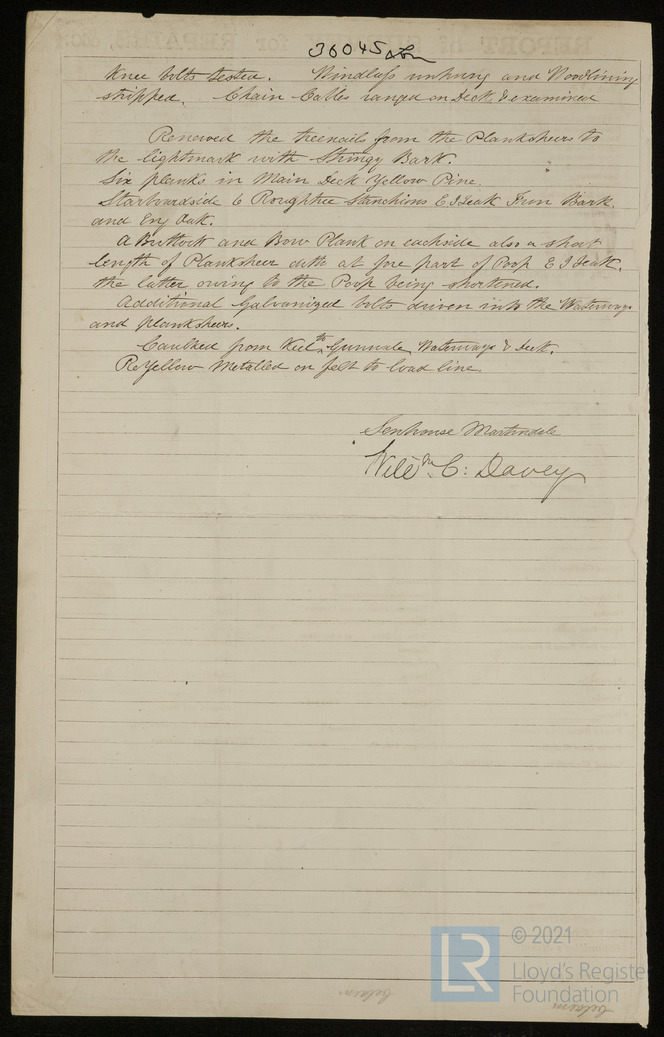 36045 Lon
Knee bolts tested. Windlass unhung and Woodlining
stripped. Chain Cables ranged on Deck & examined
Renewed the treenails from the Planksheers to
the lightmark with Stringy Bark.
Six planks in Main Deck Yellow Pine.
Starboardside 6 Roughtree Stanchions E I Teak Iron Bark
and Eng Oak.
A Buttock and Bow Plank on eachside also a short
length of Planksheer ditto at fore part of Poop E I Teak.
the latter owing to the Poop being shortened.
Additional Galvanized bolts driven into the Waterways
and planksheers.
Caulked from Keel to Gunwale, Waterways & Deck.
ReYellow Metalled on felt to load line.
Senhouse Martindale
Willm C: Davey
© 2021
Lloyd's Register
Foundation
LR